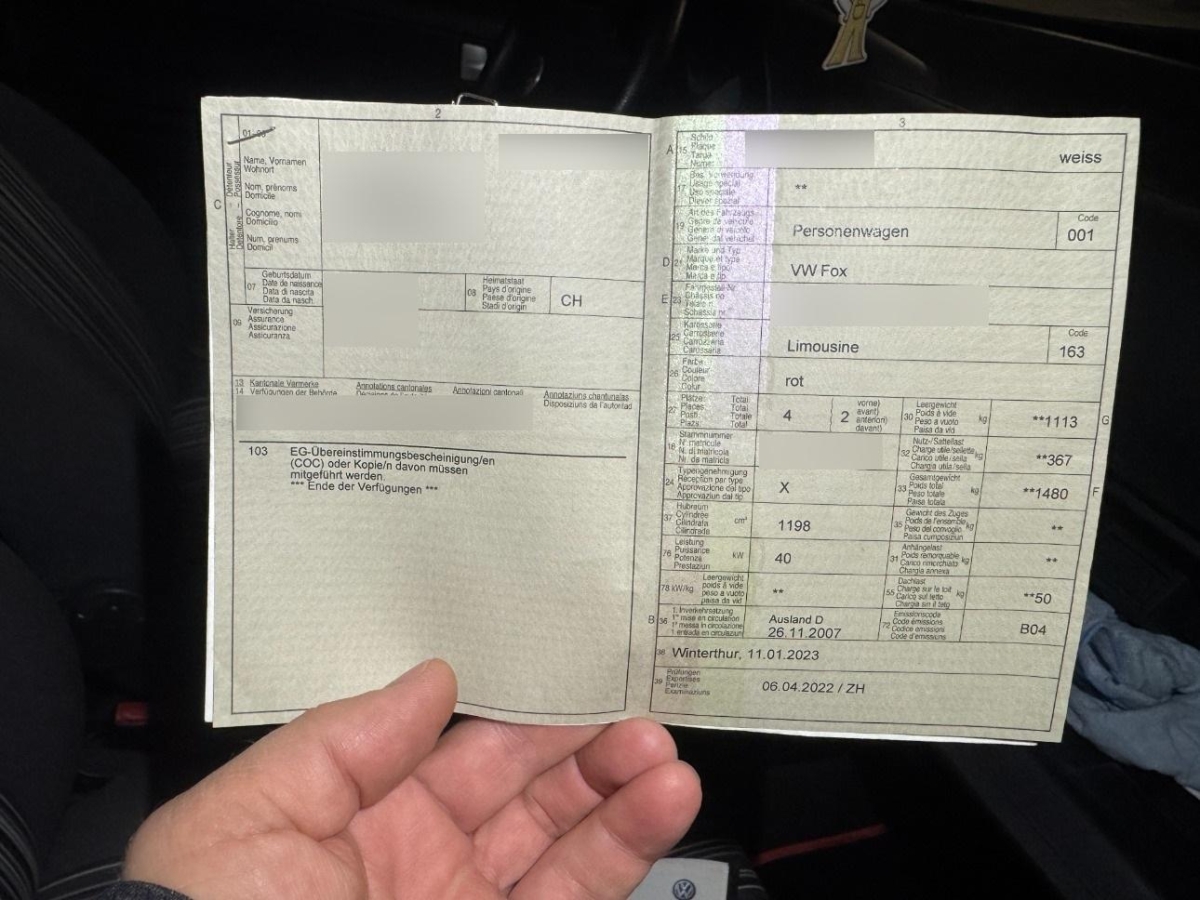 2
01-06
C
Halter – Détenteur
Detentore – Possessur
Name, Vornamen
Wohnort
Nom, prénoms
Domicile
Cognome, nomi
Domicilio
Num, prenums
Domicil
07
Geburtsdatum
Date de naissance
Data di nascita
Data da nasch.
08
Heimatstaat
Pays d'origine
Paese d'origine
Stadi d'origin
CH
09
Versicherung
Assurance
Assicurazione
Assicuranza
13 Kantonale Vermerke Annotations cantonales Annotazioni cantonali Annotaziuns chantunalas
14 Verfügungen der Behörde Disposiziuns da l'autoritad
103 EG-Übereinstimmungsbescheinigung/en
(COC) oder Kopie/n davon müssen
mitgeführt werden.
*** Ende der Verfügungen ***
3
A 15
Schild
Plaque
Targa
Numer
weiss
17
Bes. Verwendung
Usage spécial
Uso speciale
Diever spezial
**
19
Art des Fahrzeugs
Genre de véhicule
Genere di veicolo
Gener dal vehichel
Personenwagen
Code
001
D 21
Marke und Typ
Marque et type
Marca e tipo
Marca e tip
VW Fox
E 23
Fahrgestell-Nr.
Châssis no
Telaio n.
Schassis nr.
25
Karosserie
Carrosserie
Carrozzeria
Carossaria
Limousine
Code
163
26
Farbe
Couleur
Colore
Colur
rot
27
Plätze: Total
Places: Total
Posti: Totale
Plazs: Total
4
2
vorne)
avant)
anteriori)
davant)
30
Leergewicht
Poids à vide
Peso a vuoto
Paisa da vid
kg
**1113
G
18
Stammnummer
N° matricule
N. di matricola
Nr. da matricla
32
Nutz-/Sattellast
Charge utile/sellette
Carico utile/sella
Chargia utila/sella
kg
**367
24
Typengenehmigung
Réception par type
Approvazione del tipo
Approvaziun dal tip
X
33
Gesamtgewicht
Poids total
Peso totale
Paisa totala
kg
**1480
F
37
Hubraum
Cylindrée
Cilindrata
Cilindrada
cm³
1198
35
Gewicht des Zuges
Poids de l'ensemble
Peso del convoglio
Paisa cumposiziun
kg
**
76
Leistung
Puissance
Potenza
Prestaziun
kW
40
31
Anhängelast
Poids remorquable
Carico rimorchiato
Chargia annexa
kg
**
78 kW/kg
Leergewicht
poids à vide
peso a vuoto
paisa da vid
**
55
Dachlast
Charge sur le toit
Carico sul tetto
Chargia sin il tetg
kg
**50
B 36
1. Inverkehrsetzung
1re mise en circulation
1a messa in circolazione
1. entrada en circulaziun
Ausland D
26.11.2007
72
Emissionscode
Code émissions
Codice emissioni
Code d'emissiuns
B04
38 Winterthur, 11.01.2023
39
Prüfungen
Expertises
Perizie
Examinaziuns
06.04.2022 / ZH